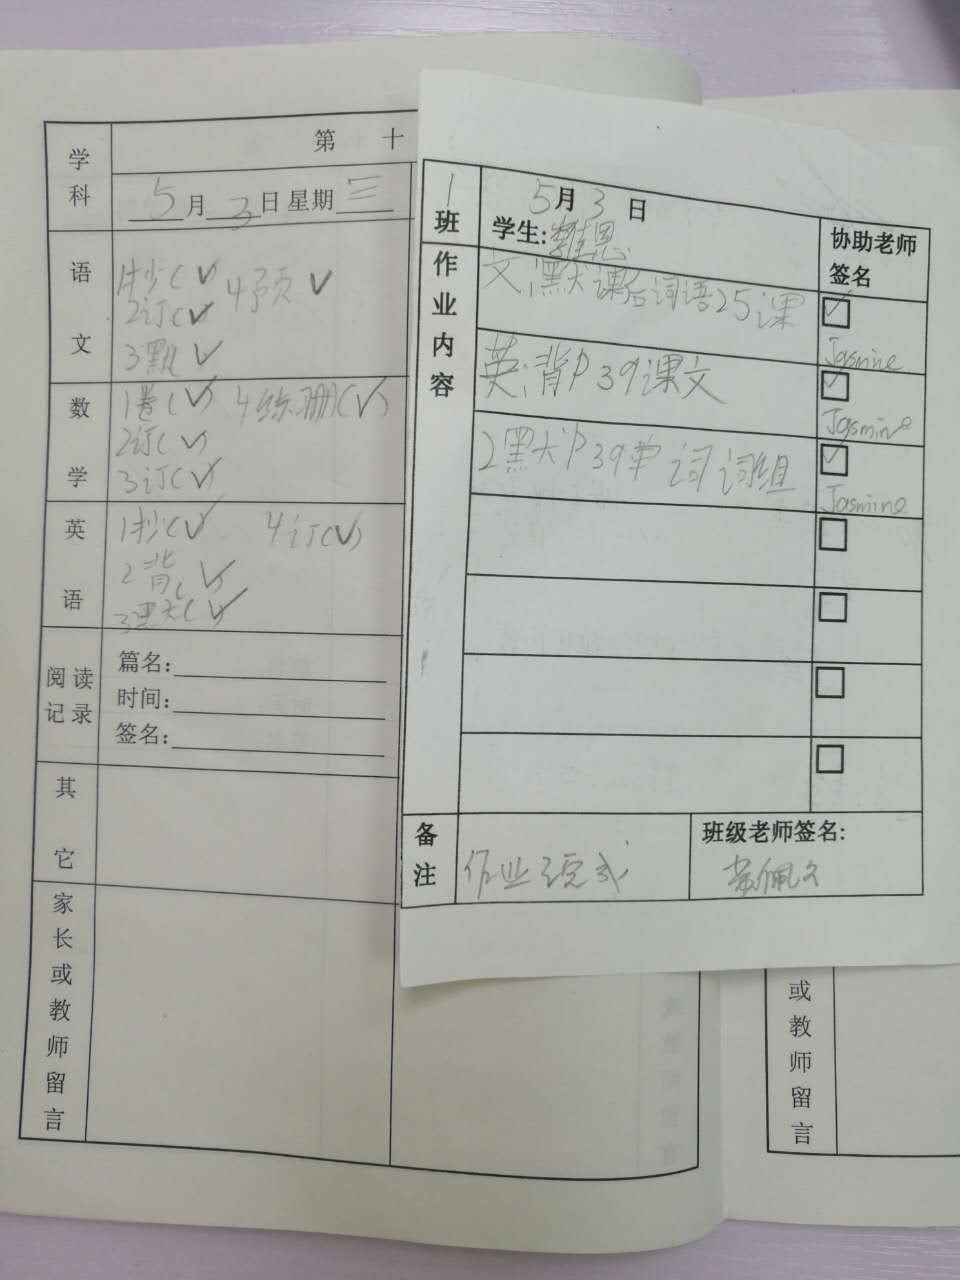 学科
第 十
5月3日 星期三
语文
1抄(✓ 4预 ✓
2订(✓
3默(✓
数学
1卷(✓) 4练册(✓)
2订(✓)
3订(✓)
英语
1抄(✓ 4订(✓)
2背(✓
3默(✓
阅读记录
篇名:
时间:
签名:
其它
家长或教师留言
1班
5月3日
学生: 恩
协助老师签名
作业内容
文: 默课后词语25课
Jasmine
英: 背P39课文
Jasmine
2默P39单词词组
Jasmine
备注
作业完成
班级老师签名:
或教师留言